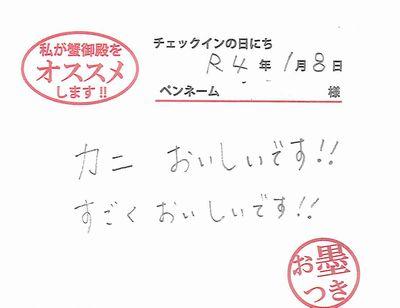 私が蟹御殿を
オススメ
します!!
チェックインの日にち
R4年1月8日
ペンネーム 様
カニ おいしいです!!
すごく おいしいです!!
お墨
つき